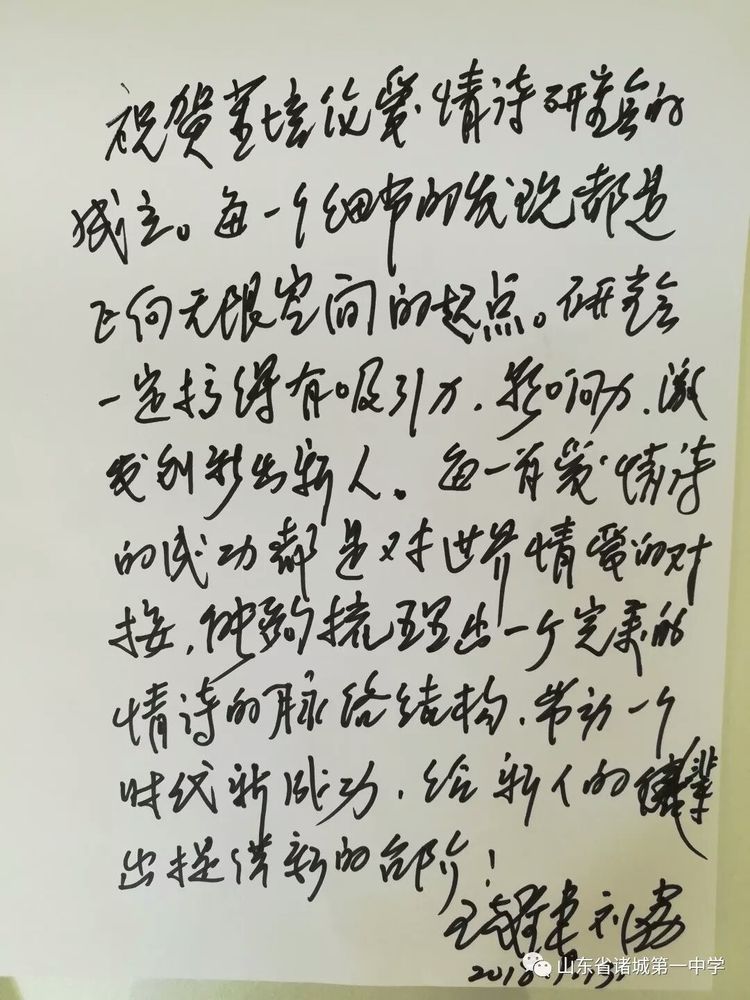 祝贺董培伦爱情诗研究会的
成立。每一个细节的发现都是
飞向无限空间的起点。研究会
一定搞得有吸引力、影响力、激
发创新出新人。每一首爱情诗
的成功都是对世界情爱的对
接,能够梳理出一个完美的
情诗的脉络结构、带动一个
时代新成功、给新人的辈
出提供新的台阶!
2018
山东省诸城第一中学